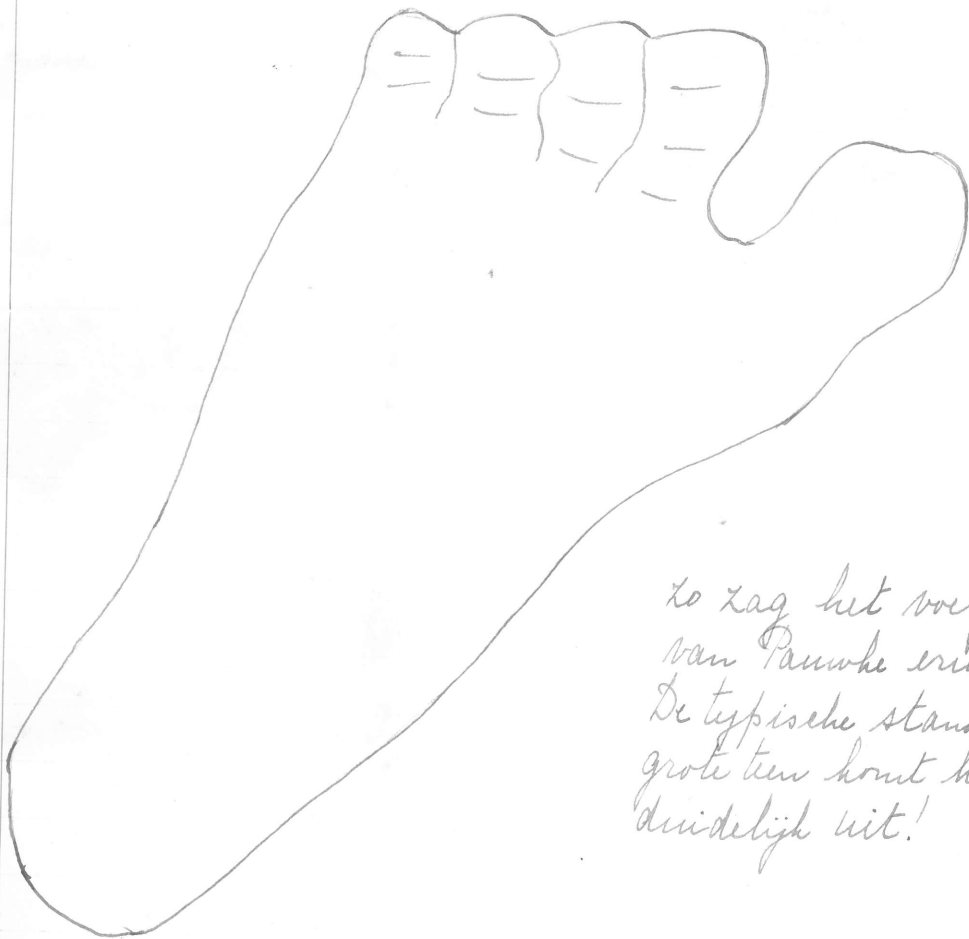 Zo zag het voe
van Pauwke erui
De typische stan
grote teen komt h
duidelijk uit!